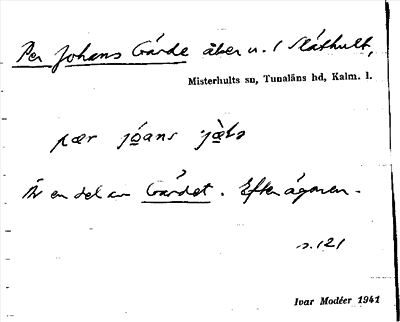 Per Johans Gärde åker u. / Slåthult,
Misterhults sn, Tunaläns hd, Kalm. l.
pær jo̱ans jæ̱ḷə
Är en del av Gärdet. Efter ägaren.
s. 121
Ivar Modéer 1941